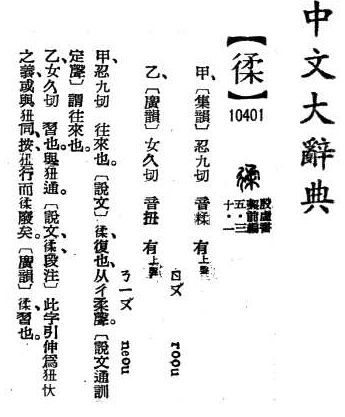 中文大辭典
【徖】
10401
殷虛書
契前編
五・三
十・一
甲、〔集韻〕忍九切 音糅 有上聲
ㄖㄡ roou
乙、〔廣韻〕女久切 音扭 有上聲
ㄋㄧㄡ neou
甲、忍九切 往來也。〔說文〕徖、復也、从彳柔聲。〔說文通訓
定聲〕謂往來也。
乙、女久切 習也。與狃通。〔說文、徖、段注〕此字引伸爲狃忕
之義、或與狃同、按、狃行而徖廢矣。〔廣韻〕徖、習也。